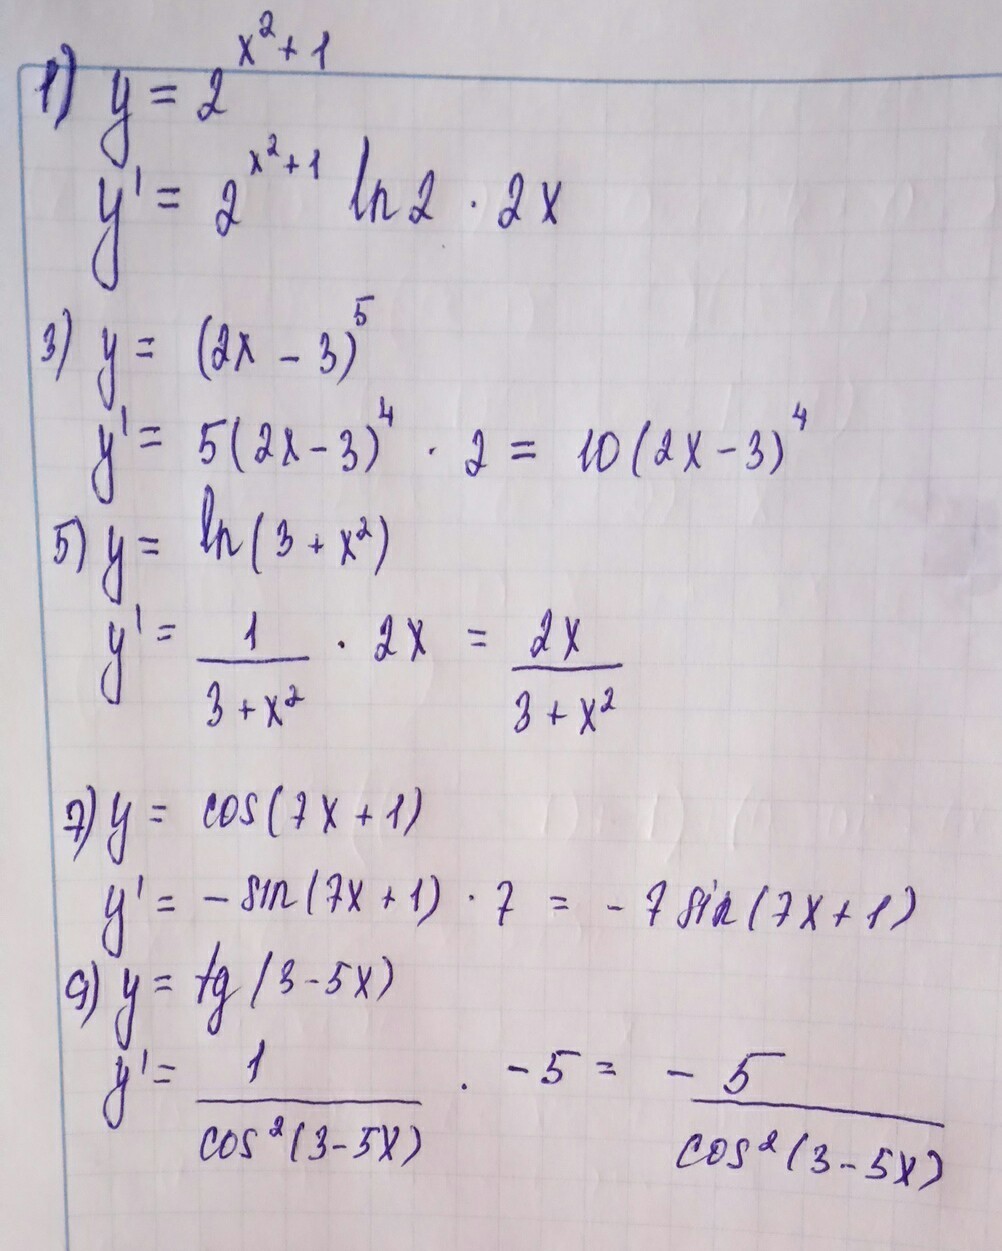 1) y = 2^(x²+1)
y' = 2^(x²+1) ln 2 · 2x
3) y = (2x - 3)⁵
y' = 5(2x-3)⁴ · 2 = 10(2x-3)⁴
5) y = ln(3 + x²)
y' = 1/(3+x²) · 2x = 2x/(3+x²)
7) y = cos(7x+1)
y' = -sin(7x+1) · 7 = -7 sin(7x+1)
9) y = tg(3-5x)
y' = 1/(cos²(3-5x)) · -5 = -5/(cos²(3-5x))